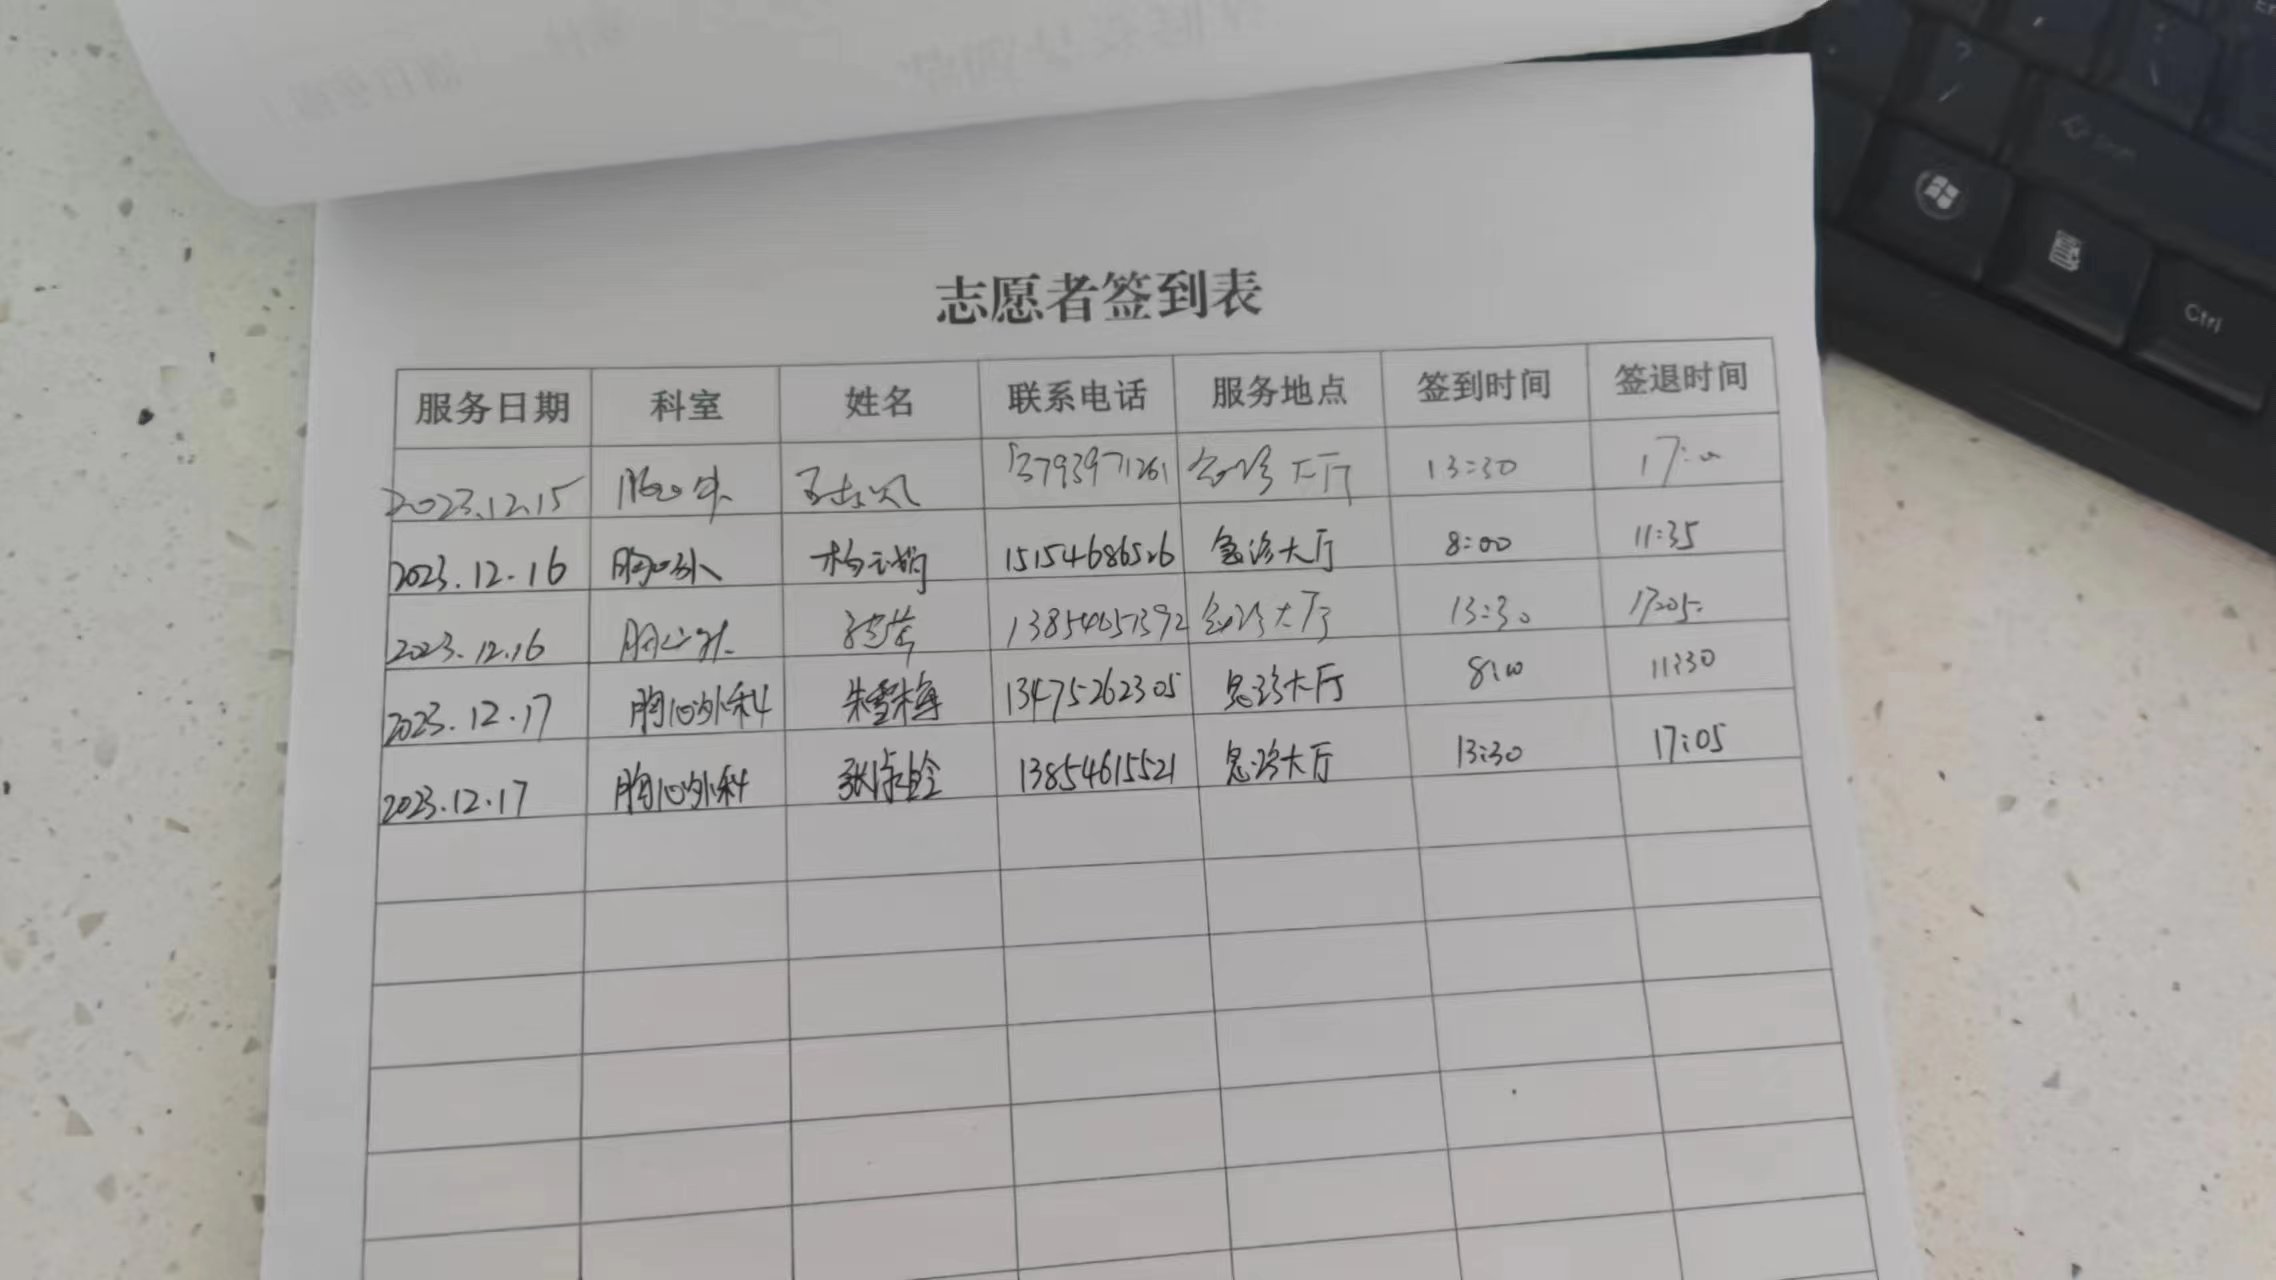 志愿者签到表
服务日期 科室 姓名 联系电话 服务地点 签到时间 签退时间
2023.12.15 胸心外 13793971261 急诊大厅 13:30 17:00
2023.12.16 胸心外 15154686526 急诊大厅 8:00 11:35
2023.12.16 胸心外 13854657392 急诊大厅 13:30 17:05
2023.12.17 胸心外科 朱雪梅 13475262305 急诊大厅 8:00 11:30
2023.12.17 胸心外科 13854615521 急诊大厅 13:30 17:05
Ctrl